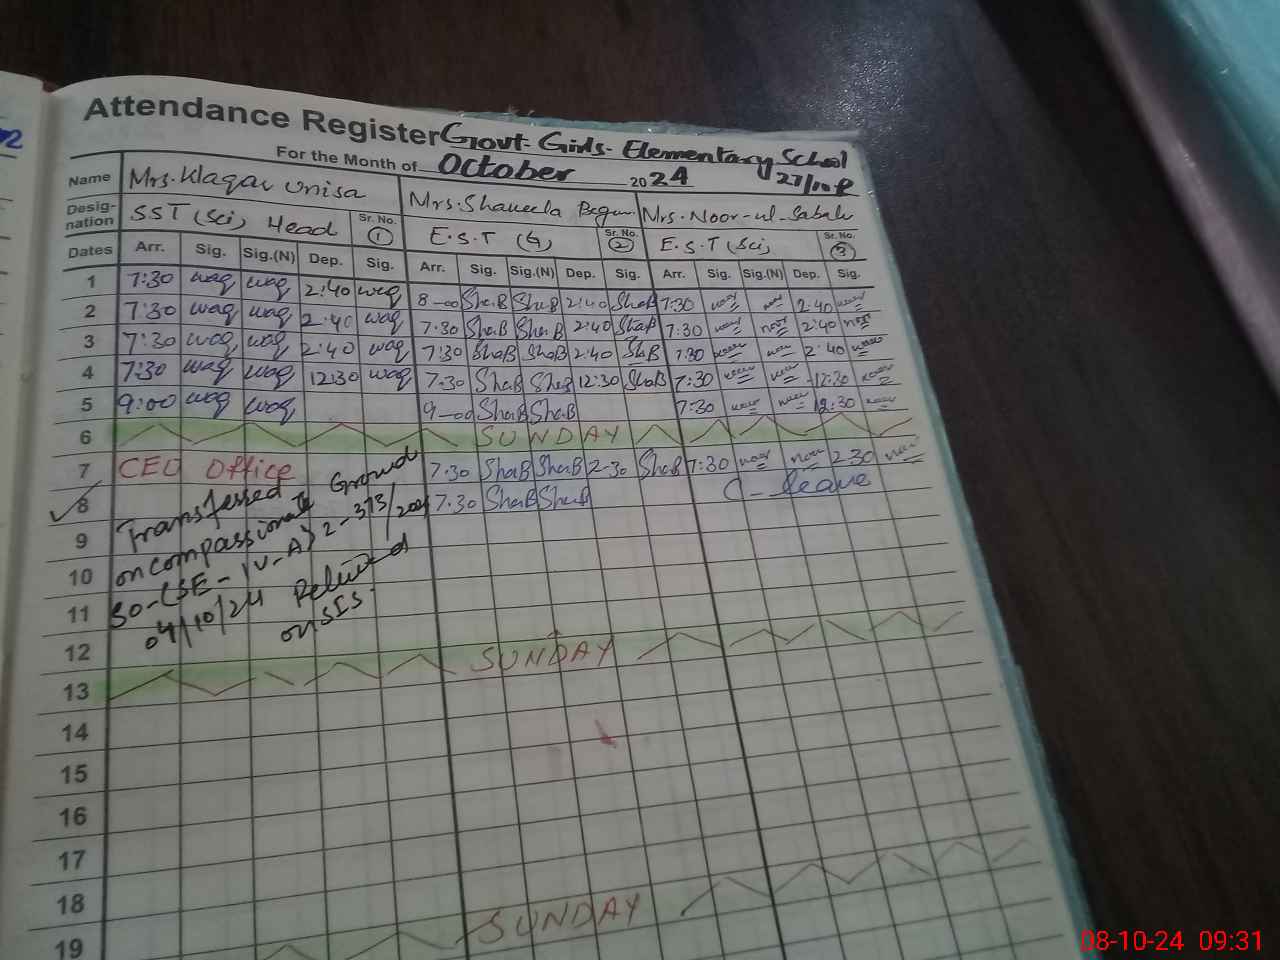 Attendance Register Govt. Girls. Elementary School
For the Month of October 2024 27/10R
Name Mrs. Waqar Unisa Mrs. Shaueela Begum Mrs. Noor-ul-Sabah
Designation SST (Sci) Head Sr. No. 1 E.S.T (G) Sr. No. 2 E.S.T (Sci) Sr. No. 3
Dates Arr. Sig. Sig.(N) Dep. Sig. Arr. Sig. Sig.(N) Dep. Sig. Arr. Sig. Sig.(N) Dep. Sig.
1 7:30 waq waq 2:40 waq 8-00 ShaB ShaB 2:40 ShaB 7:30 noor noor 2:40 noor
2 7:30 waq waq 2:40 waq 7.30 ShaB ShaB 2:40 ShaB 7:30 noor noor 2:40 noor
3 7:30 waq waq 2:40 waq 7:30 ShaB ShaB 2:40 ShaB 7:30 noor noor 2:40 noor
4 7:30 waq waq 12:30 waq 7:30 ShaB ShaB 12:30 ShaB 7:30 noor noor 12:30 noor
5 9:00 waq waq 9-00 ShaB ShaB 7:30 noor noor 12:30 noor
6 SUNDAY
7 CEO Office 7.30 ShaB ShaB 2-30 ShaB 7:30 noor noor 2:30 noor
8 7.30 ShaB ShaB C-leave
Transfessed
on compassionate Ground
SO-(SE-IV-A) 2-373/
04/10/24 Relieved
on SIS.
9
10
11
12
13 SUNDAY
14
15
16
17
18
19 SUNDAY
08-10-24 09:31